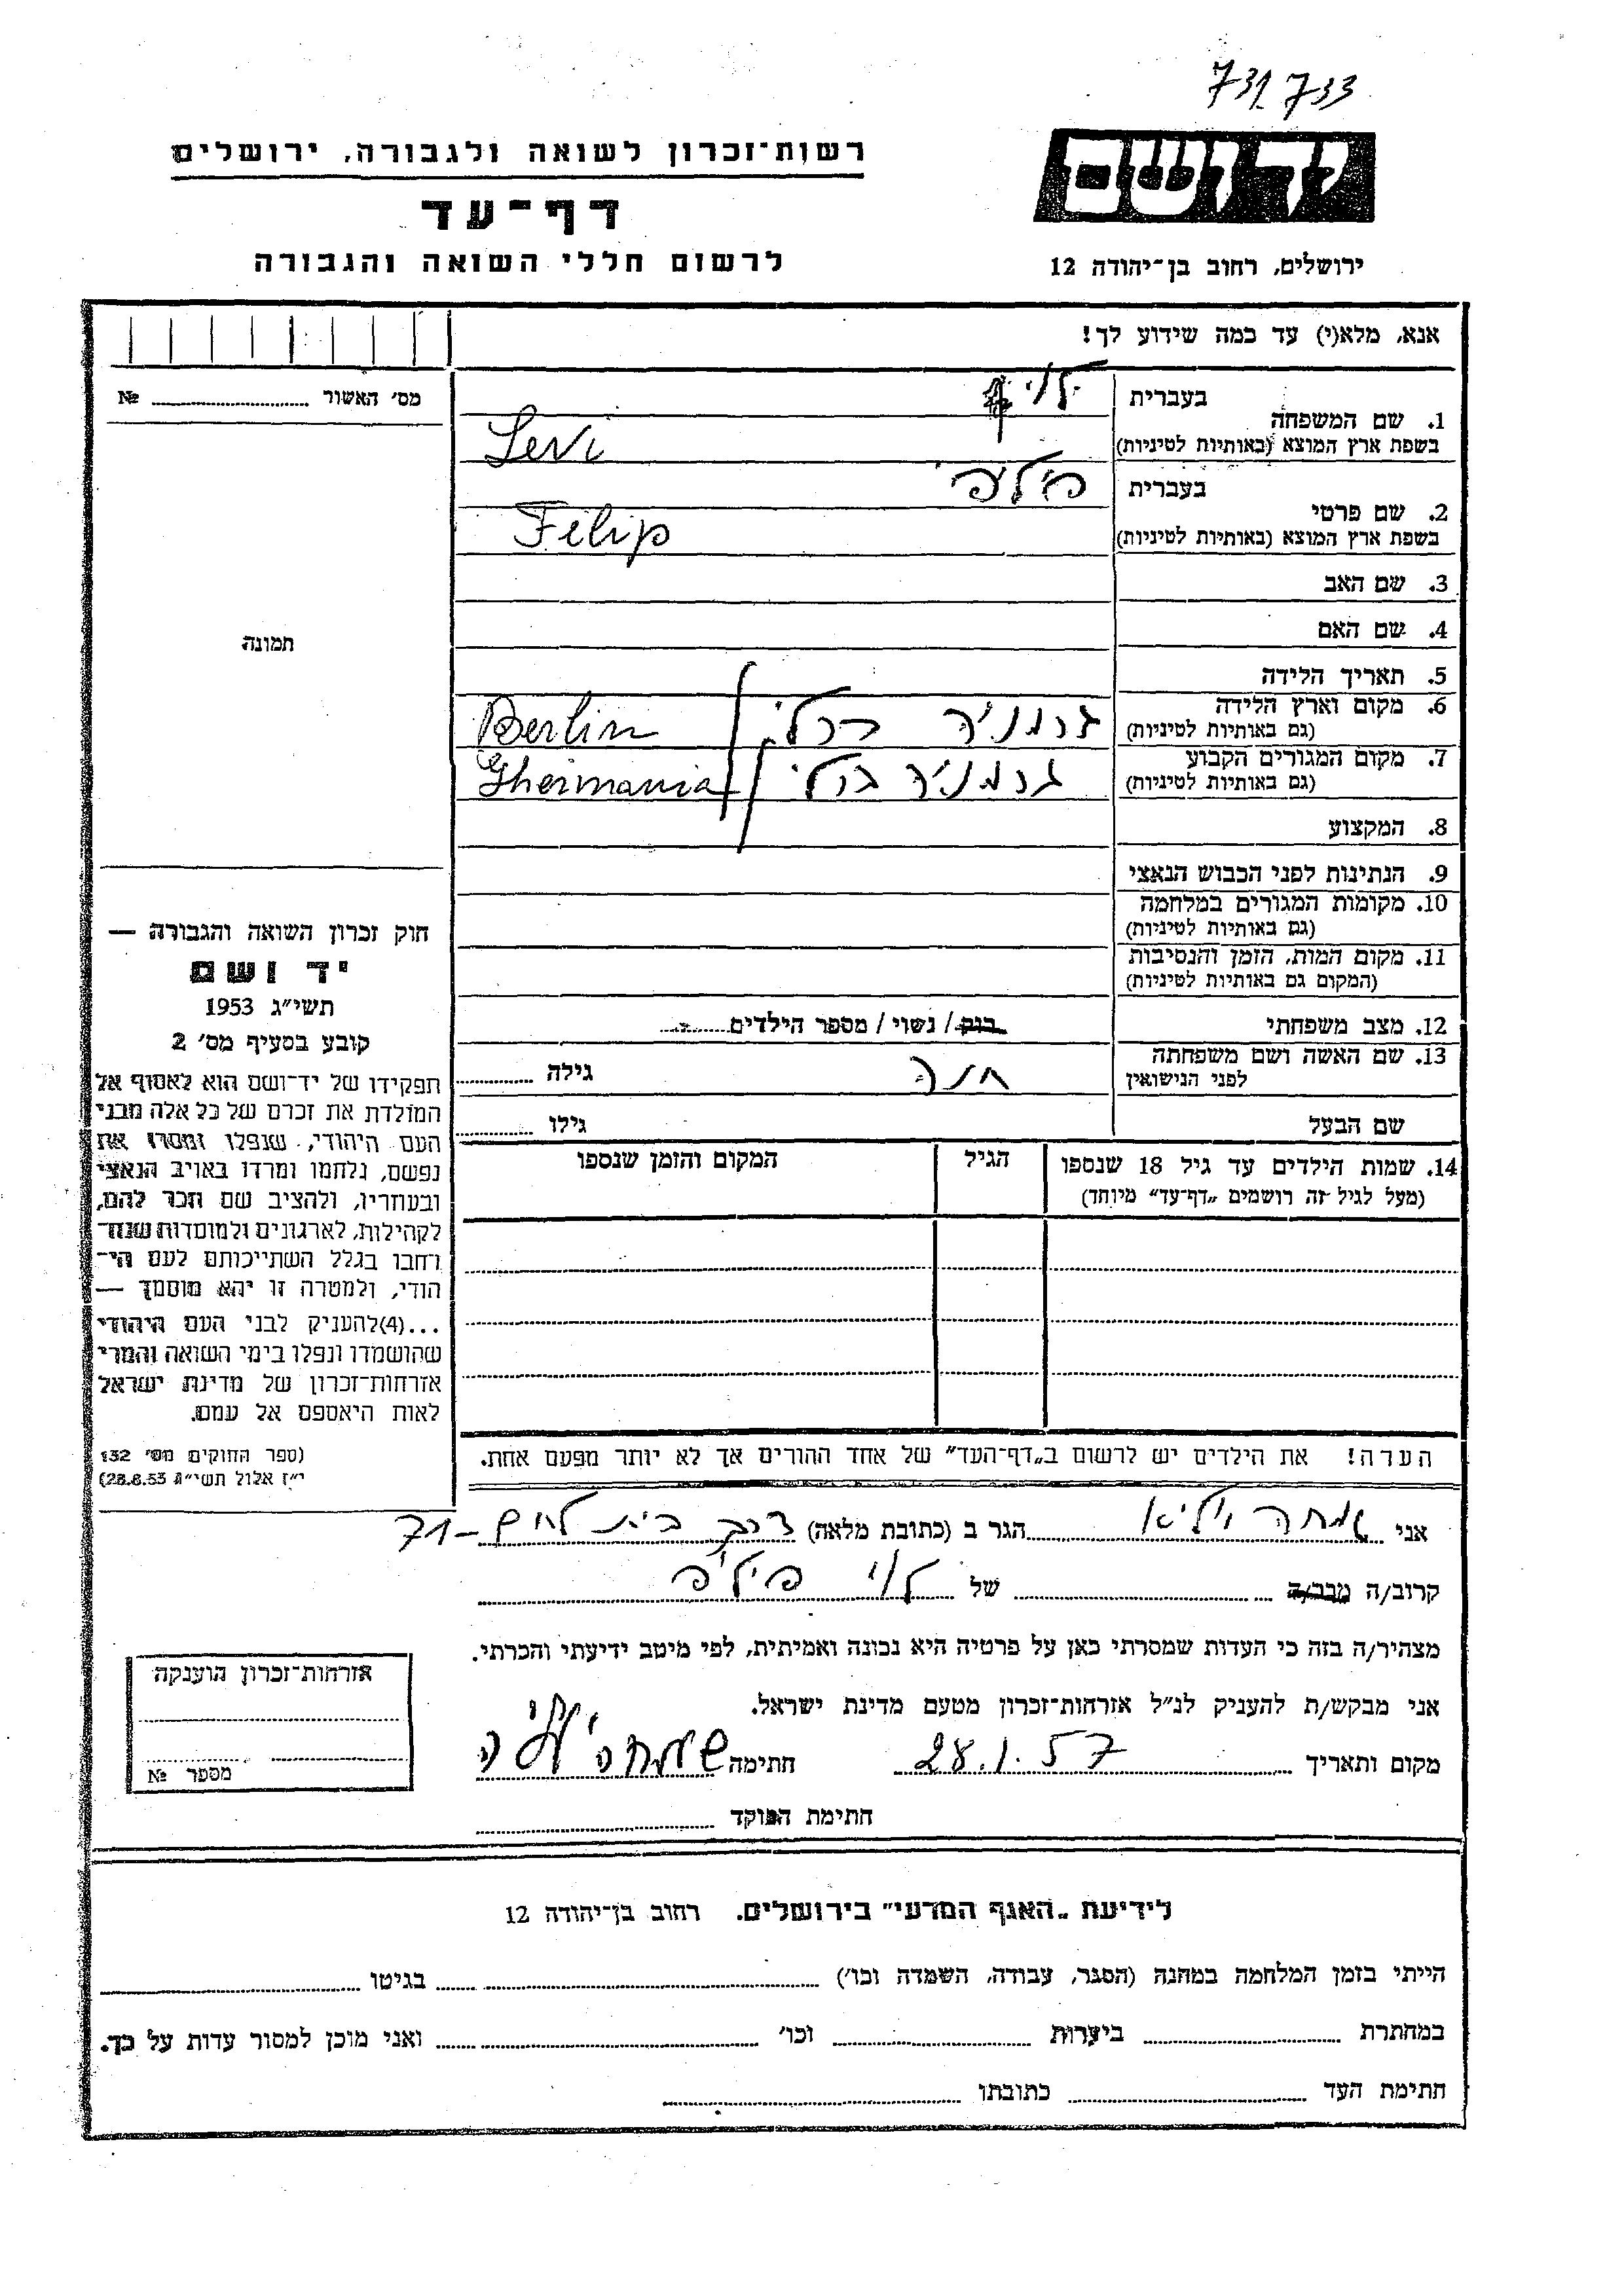 731 733
יד ושם
רשות־זכרון לשואה ולגבורה, ירושלים
דף־עד
לרשום חללי השואה והגבורה
ירושלים, רחוב בן־יהודה 12
אנא, מלא(י) עד כמה שידוע לך!
מס׳ האשור № 
1. שם המשפחה בעברית לוי
בשפת ארץ המוצא (באותיות לטיניות) Levi
2. שם פרטי בעברית פילפ
בשפת ארץ המוצא (באותיות לטיניות) Felip
3. שם האב
4. שם האם
תמונה
5. תאריך הלידה
6. מקום וארץ הלידה
(גם באותיות לטיניות) גרמניה ברלי Berlin
7. מקום המגורים הקבוע
(גם באותיות לטיניות) גרמניה ברלי Ghermania
8. המקצוע
9. הנתינות לפני הכבוש הנאצי
10. מקומות המגורים במלחמה
(גם באותיות לטיניות)
11. מקום המות, הזמן והנסיבות
(המקום גם באותיות לטיניות)
12. מצב משפחתי רווק / נשוי / מספר הילדים
13. שם האשה ושם משפחתה
לפני הנישואין חנה גילה
שם הבעל גילו
14. שמות הילדים עד גיל 18 שנספו הגיל המקום והזמן שנספו
(מעל לגיל זה רושמים „דף־עד” מיוחד)
חוק זכרון השואה והגבורה —
יד ושם
תשי״ג 1953
קובע בסעיף מס׳ 2
תפקידו של יד־ושם הוא לאסוף אל
המולדת את זכרם של כל אלה מבני
העם היהודי, שנפלו ומסרו את
נפשם, נלחמו ומרדו באויב הנאצי
ובעוזריו, ולהציב שם וזכר להם,
לקהילות, לארגונים ולמוסדות שנח־
רחבו בגלל השתייכותם לעם הי־
הודי, ולמטרה זו יהא מוסמך —
...(4)להעניק לבני העם היהודי
שהושמדו ונפלו בימי השואה והמרי
אזרחות־זכרון של מדינת ישראל
לאות היאספם אל עמם.
(ספר החוקים מס׳ 132
י״ז אלול תשי״ג 28.8.53)
הערה! את הילדים יש לרשום ב„דף־העד” של אחד ההורים אך לא יותר מפעם אחת.
אני הגר ב (כתובת מלאה) דרך בית לחם - 71
קרוב/ה מכר/ה של לוי פילפ
מצהיר/ה בזה כי העדות שמסרתי כאן על פרטיה היא נכונה ואמיתית, לפי מיטב ידיעתי והכרתי.
אני מבקש/ת להעניק לנ״ל אזרחות־זכרון מטעם מדינת ישראל.
מקום ותאריך 28.1.57 חתימה שמחה
חתימת הפוקד
אזרחות־זכרון הוענקה
מספר №
לידיעת „האגף המדעי” בירושלים. רחוב בן־יהודה 12
הייתי בזמן המלחמה במחנה (הסגר, עבודה, השמדה וכו׳) בגיטו
במחתרת ביערות וכו׳ ואני מוכן למסור עדות על כך.
חתימת העד כתובתו